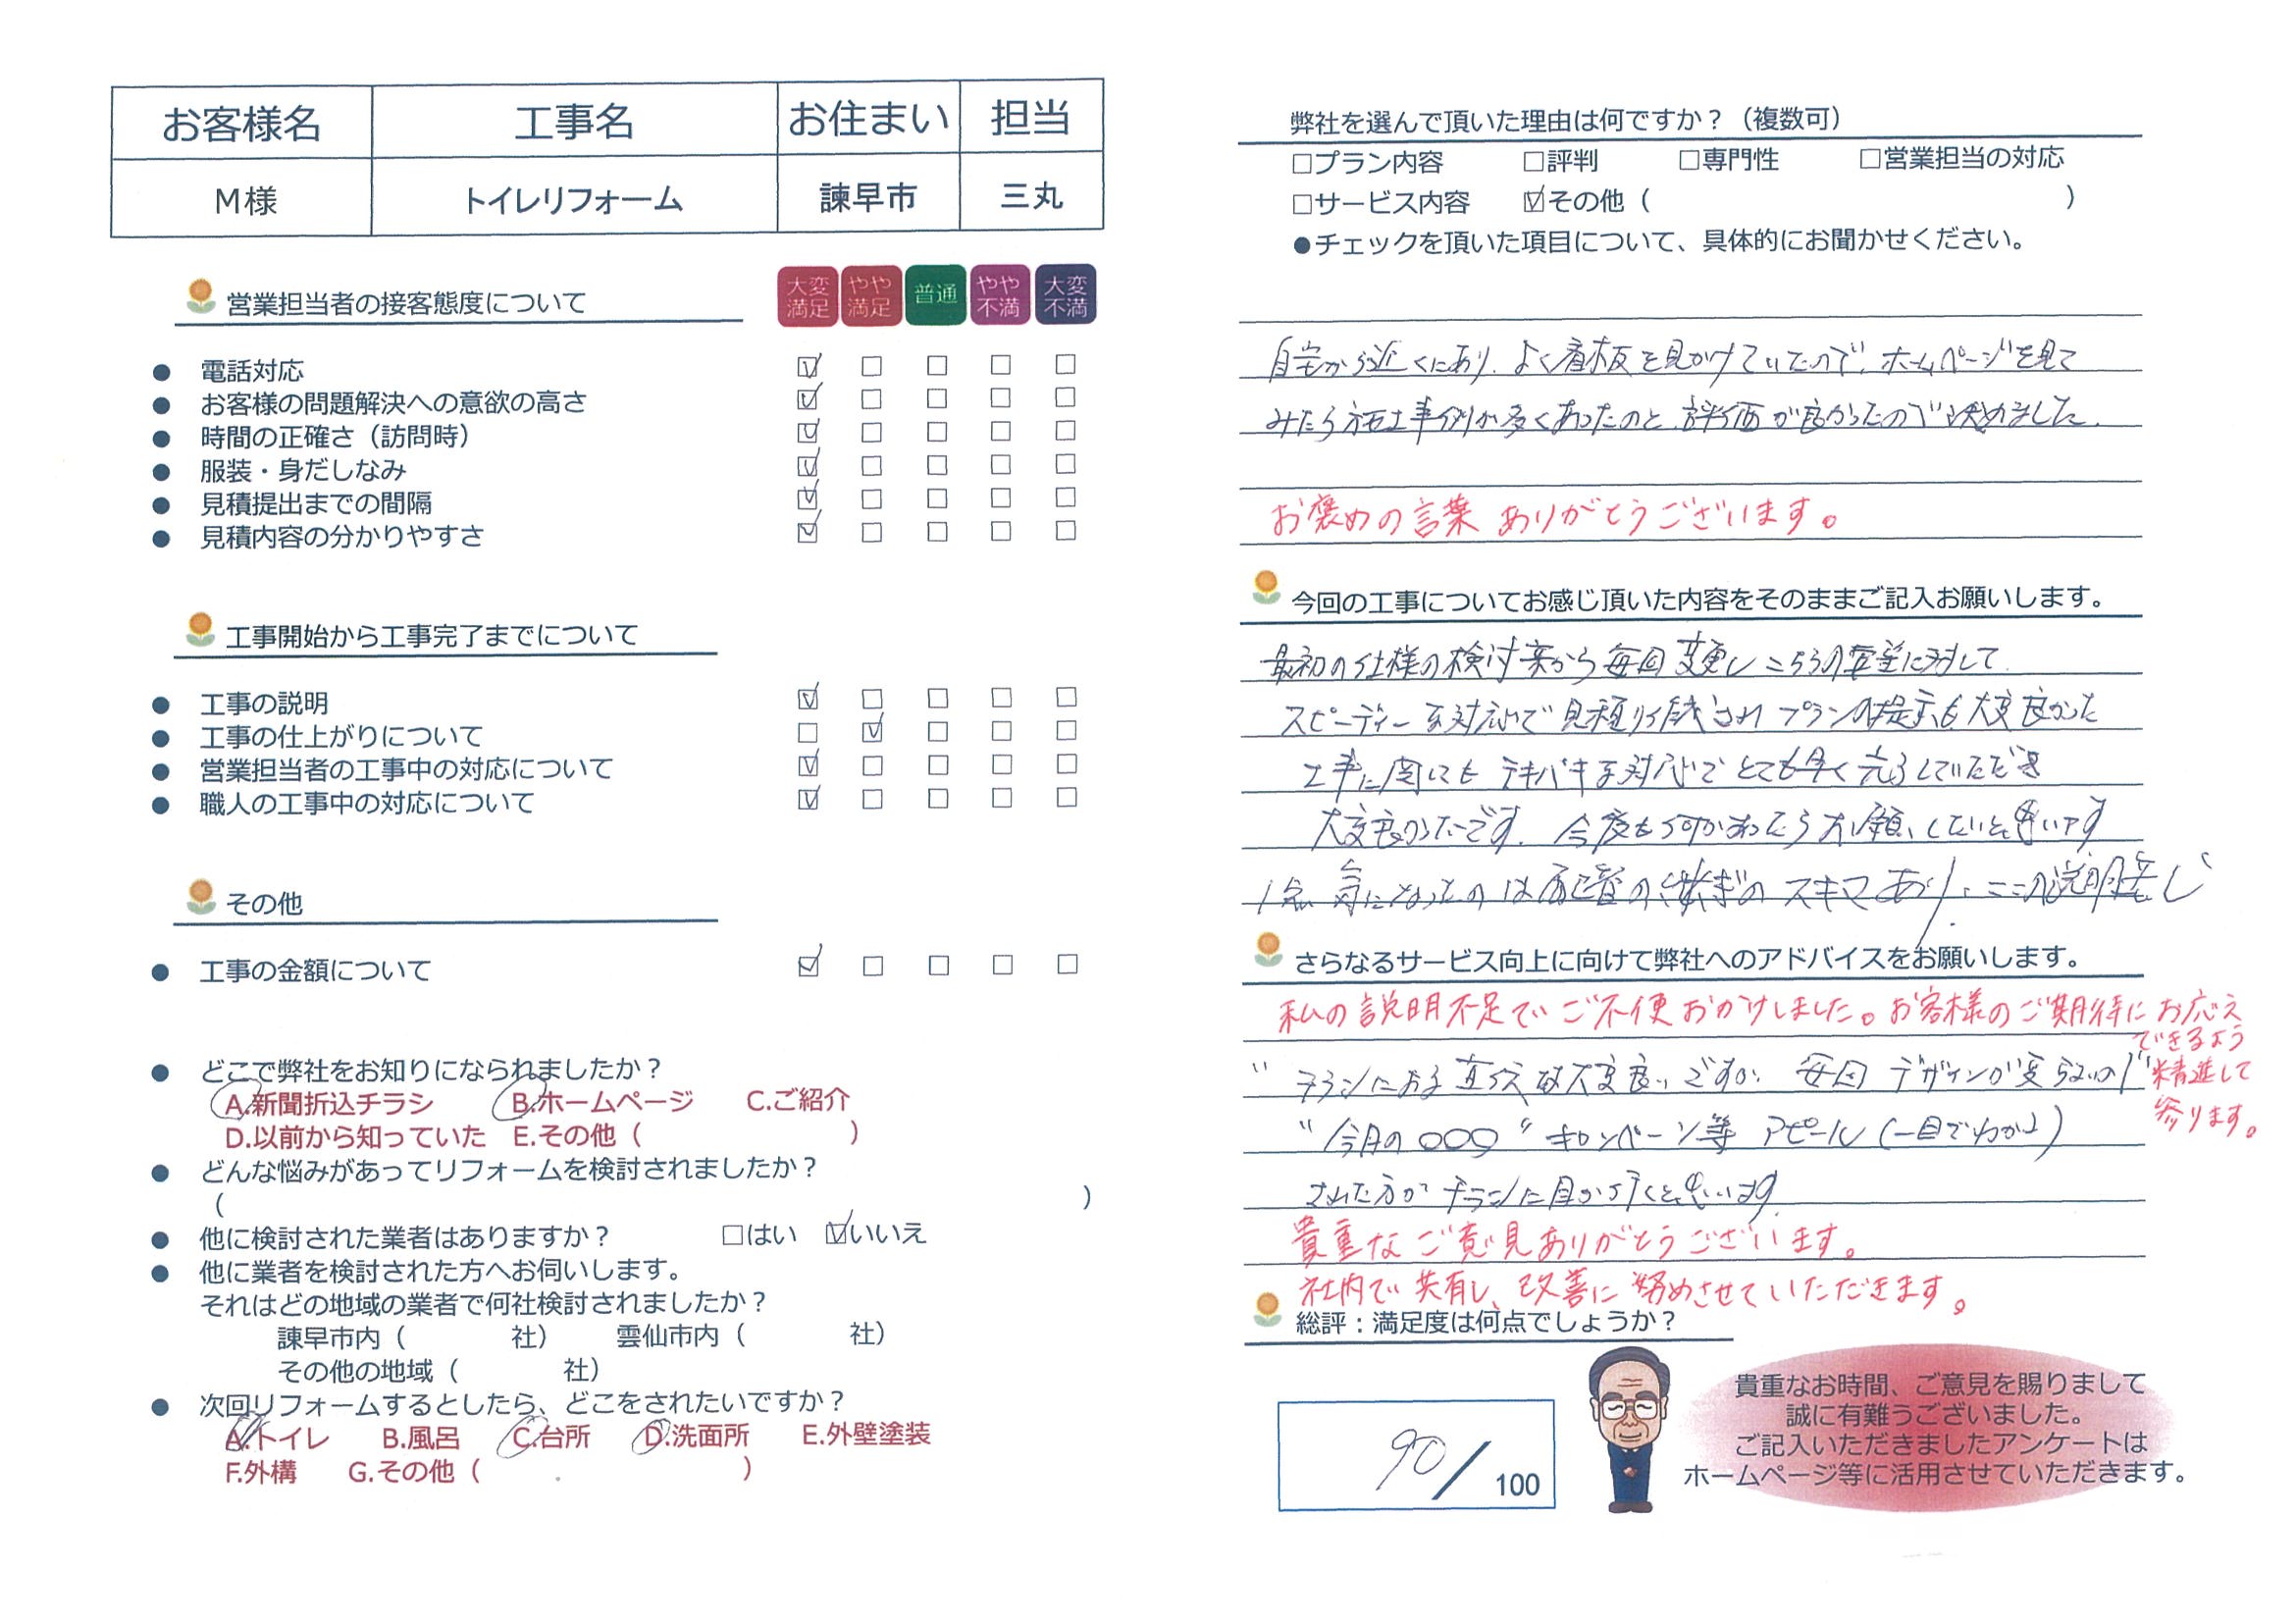 お客様名 工事名 お住まい 担当
M様 トイレリフォーム 諫早市 三丸
営業担当者の接客態度について
大変満足 やや満足 普通 やや不満 大変不満
● 電話対応 ☑ □ □ □ □
● お客様の問題解決への意欲の高さ ☑ □ □ □ □
● 時間の正確さ（訪問時） ☑ □ □ □ □
● 服装・身だしなみ ☑ □ □ □ □
● 見積提出までの間隔 ☑ □ □ □ □
● 見積内容の分かりやすさ ☑ □ □ □ □
工事開始から工事完了までについて
● 工事の説明 ☑ □ □ □ □
● 工事の仕上がりについて □ ☑ □ □ □
● 営業担当者の工事中の対応について ☑ □ □ □ □
● 職人の工事中の対応について ☑ □ □ □ □
その他
● 工事の金額について ☑ □ □ □ □
● どこで弊社をお知りになられましたか？
A.新聞折込チラシ B.ホームページ C.ご紹介
D.以前から知っていた E.その他（ ）
● どんな悩みがあってリフォームを検討されましたか？
（ ）
● 他に検討された業者はありますか？ □はい ☑いいえ
● 他に業者を検討された方へお伺いします。
それはどの地域の業者で何社検討されましたか？
諫早市内（ 社） 雲仙市内（ 社）
その他の地域（ 社）
● 次回リフォームするとしたら、どこをされたいですか？
A.トイレ B.風呂 C.台所 D.洗面所 E.外壁塗装
F.外構 G.その他（ ）
弊社を選んで頂いた理由は何ですか？（複数可）
□プラン内容 □評判 □専門性 □営業担当の対応
□サービス内容 ☑その他（ ）
●チェックを頂いた項目について、具体的にお聞かせください。
自宅から近くにあり、よく看板を見かけていたので、ホームページを見て
みたら施工事例が多くあったのと、評価が良かったので決めました。
お褒めの言葉 ありがとうございます。
今回の工事についてお感じ頂いた内容をそのままご記入お願いします。
最初の仕様の検討案から毎回変更しこちらの要望に対して、
スピーディーな対応で見積り作成されプランの提示も大変良かった
工事に関してもテキパキな対応でとても早く完了していただき
大変良かったです。今度も何かあったらお願いしたいと思います
1点 気になったのは配管の継ぎのスキマあり、ここの説明無し
さらなるサービス向上に向けて弊社へのアドバイスをお願いします。
私の説明不足でご不便おかけしました。お客様のご期待にお応え
できるよう
精進して
参ります。
チラシにおる 大変良いですが、毎回デザインが変らないので
"今月の○○○"キャンペーン等 アピール(一目でわかる)
された方がチラシに目が行くと思います。
貴重なご意見ありがとうございます。
社内で共有し、改善に努めさせていただきます。
総評：満足度は何点でしょうか？
90／100
貴重なお時間、ご意見を賜りまして
誠に有難うございました。
ご記入いただきましたアンケートは
ホームページ等に活用させていただきます。